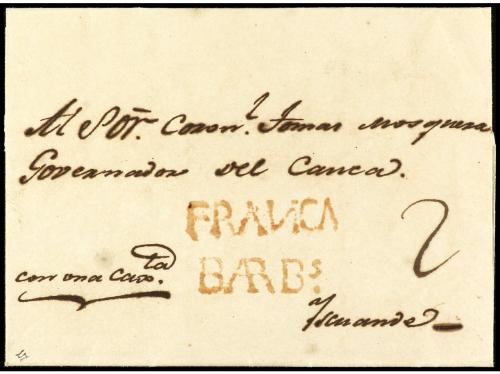 Al Sor. Coron.l Tomas Mosquera
Governador del Cauca.
FRANCA
BARBs.
2
con una Caxta.
Yscuande